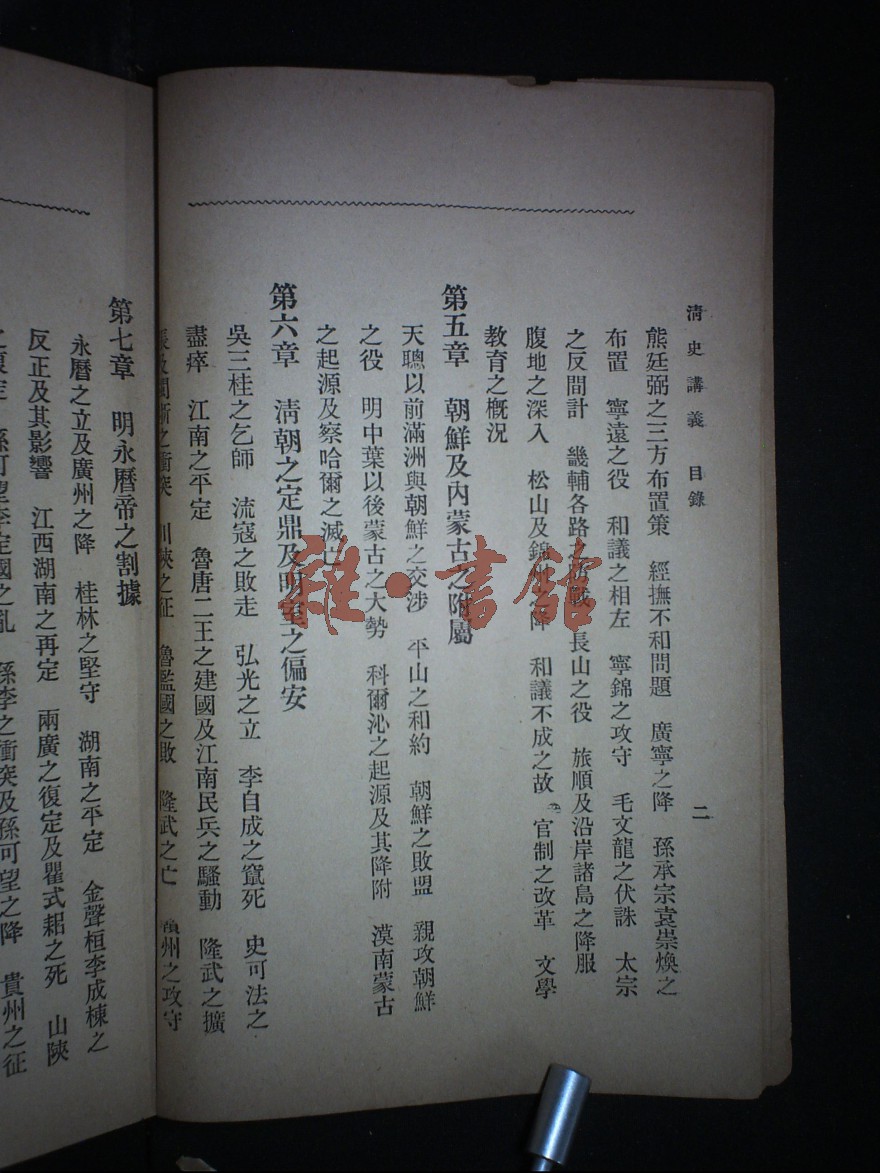 清史講義　目錄　二
熊廷弼之三方布置策　經撫不和問題　廣寧之降　孫承宗袁崇煥之
布置　寧遠之役　和議之相左　寧錦之攻守　毛文龍之伏誅　太宗
之反間計　畿輔各路之　戰　長山之役　旅順及沿岸諸島之降服
腹地之深入　松山及錦州之降　和議不成之故　官制之改革　文學
教育之槪況
第五章　朝鮮及內蒙古之附屬
天聰以前滿洲與朝鮮之交涉　平山之和約　朝鮮之敗盟　親攻朝鮮
之役　明中葉以後蒙古之大勢　科爾沁之起源及其降附　漠南蒙古
之起源及察哈爾之滅亡
第六章　淸朝之定鼎及明室之偏安
吳三桂之乞師　流寇之敗走　弘光之立　李自成之竄死　史可法之
盡瘁　江南之平定　魯唐二王之建國及江南民兵之騷動　隆武之擴
張及閩浙之衝突　川陝之征　魯監國之敗　隆武之亡　贛州之攻守
第七章　明永曆帝之割據
永曆之立及廣州之降　桂林之堅守　湖南之平定　金聲桓李成棟之
反正及其影響　江西湖南之再定　兩廣之復定及瞿式耜之死　山陝
之復定　孫可望李定國之亂　孫李之衝突及孫可望之降　貴州之征
雜·書館